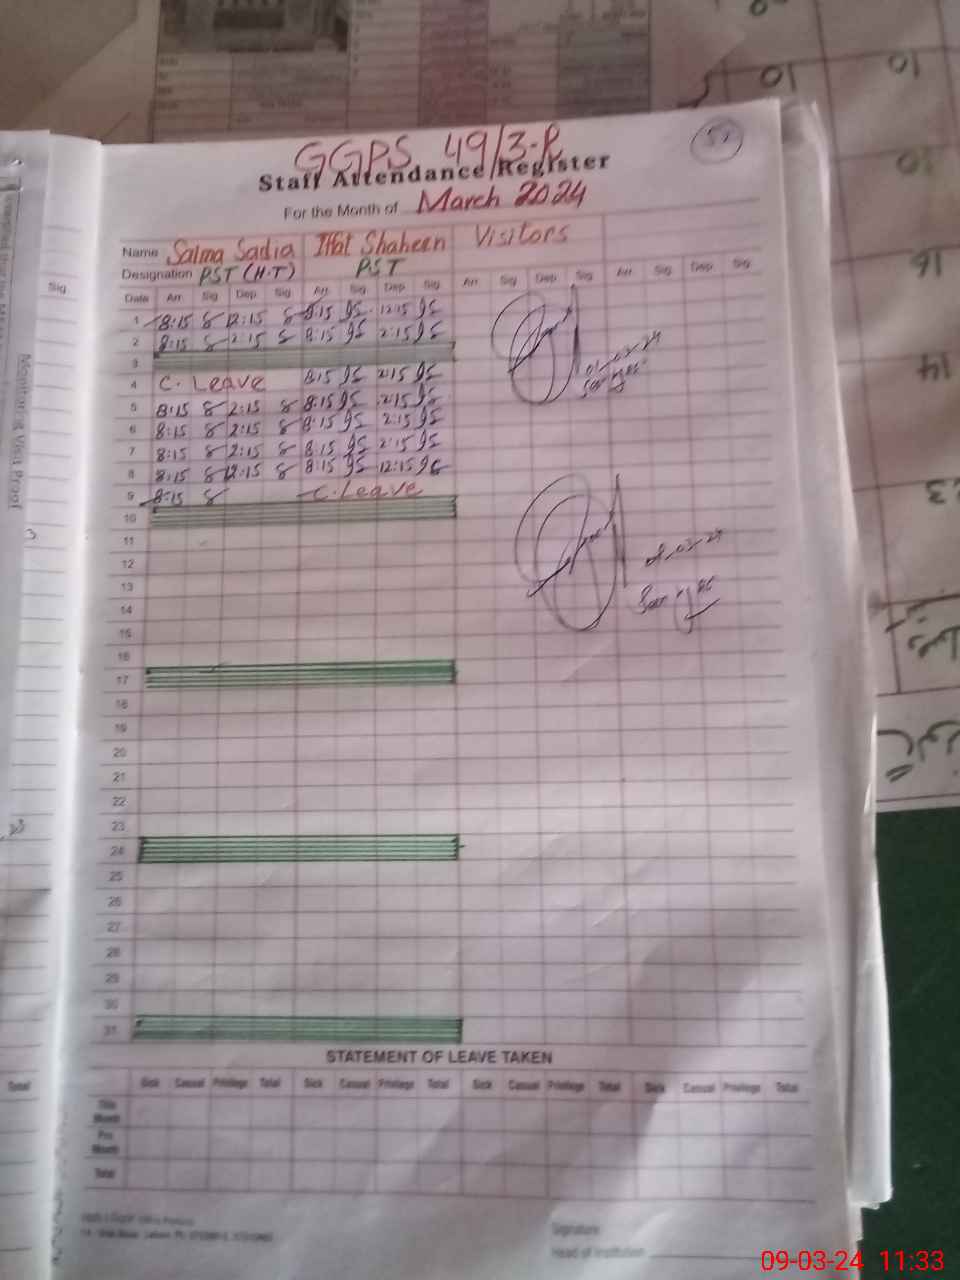 GGPS 49/3-R
Staff Attendance Register
For the Month of March 2024
Name Salma Sadia Iffat Shaheen Visitors
Designation PST (H.T) PST
Date Arr Sig Dep Sig Arr Sig Dep Sig Arr Sig Dep Sig Arr Sig Dep Sig
1 8:15 12:15 8:15 12:15
2 8:15 2:15 8:15 2:15
3
4 C. Leave 8:15 2:15
01-03-24
5 8:15 2:15 8:15 2:15
6 8:15 2:15 8:15 2:15
7 8:15 2:15 8:15 2:15
8 8:15 12:15 8:15 12:15
9 8:15 C. Leave
10
11
12
13
14
15
16
17
18
19
20
21
22
23
24
25
26
27
28
29
30
31
STATEMENT OF LEAVE TAKEN
Sick Casual Privilege Total Sick Casual Privilege Total Sick Casual Privilege Total Sick Casual Privilege Total
This Month
Pre Month
Total
Signature
Head of Institution
Sig
Monitoring Visit Proof
Total
10 10
20
16
14
23
09-03-24 11:33